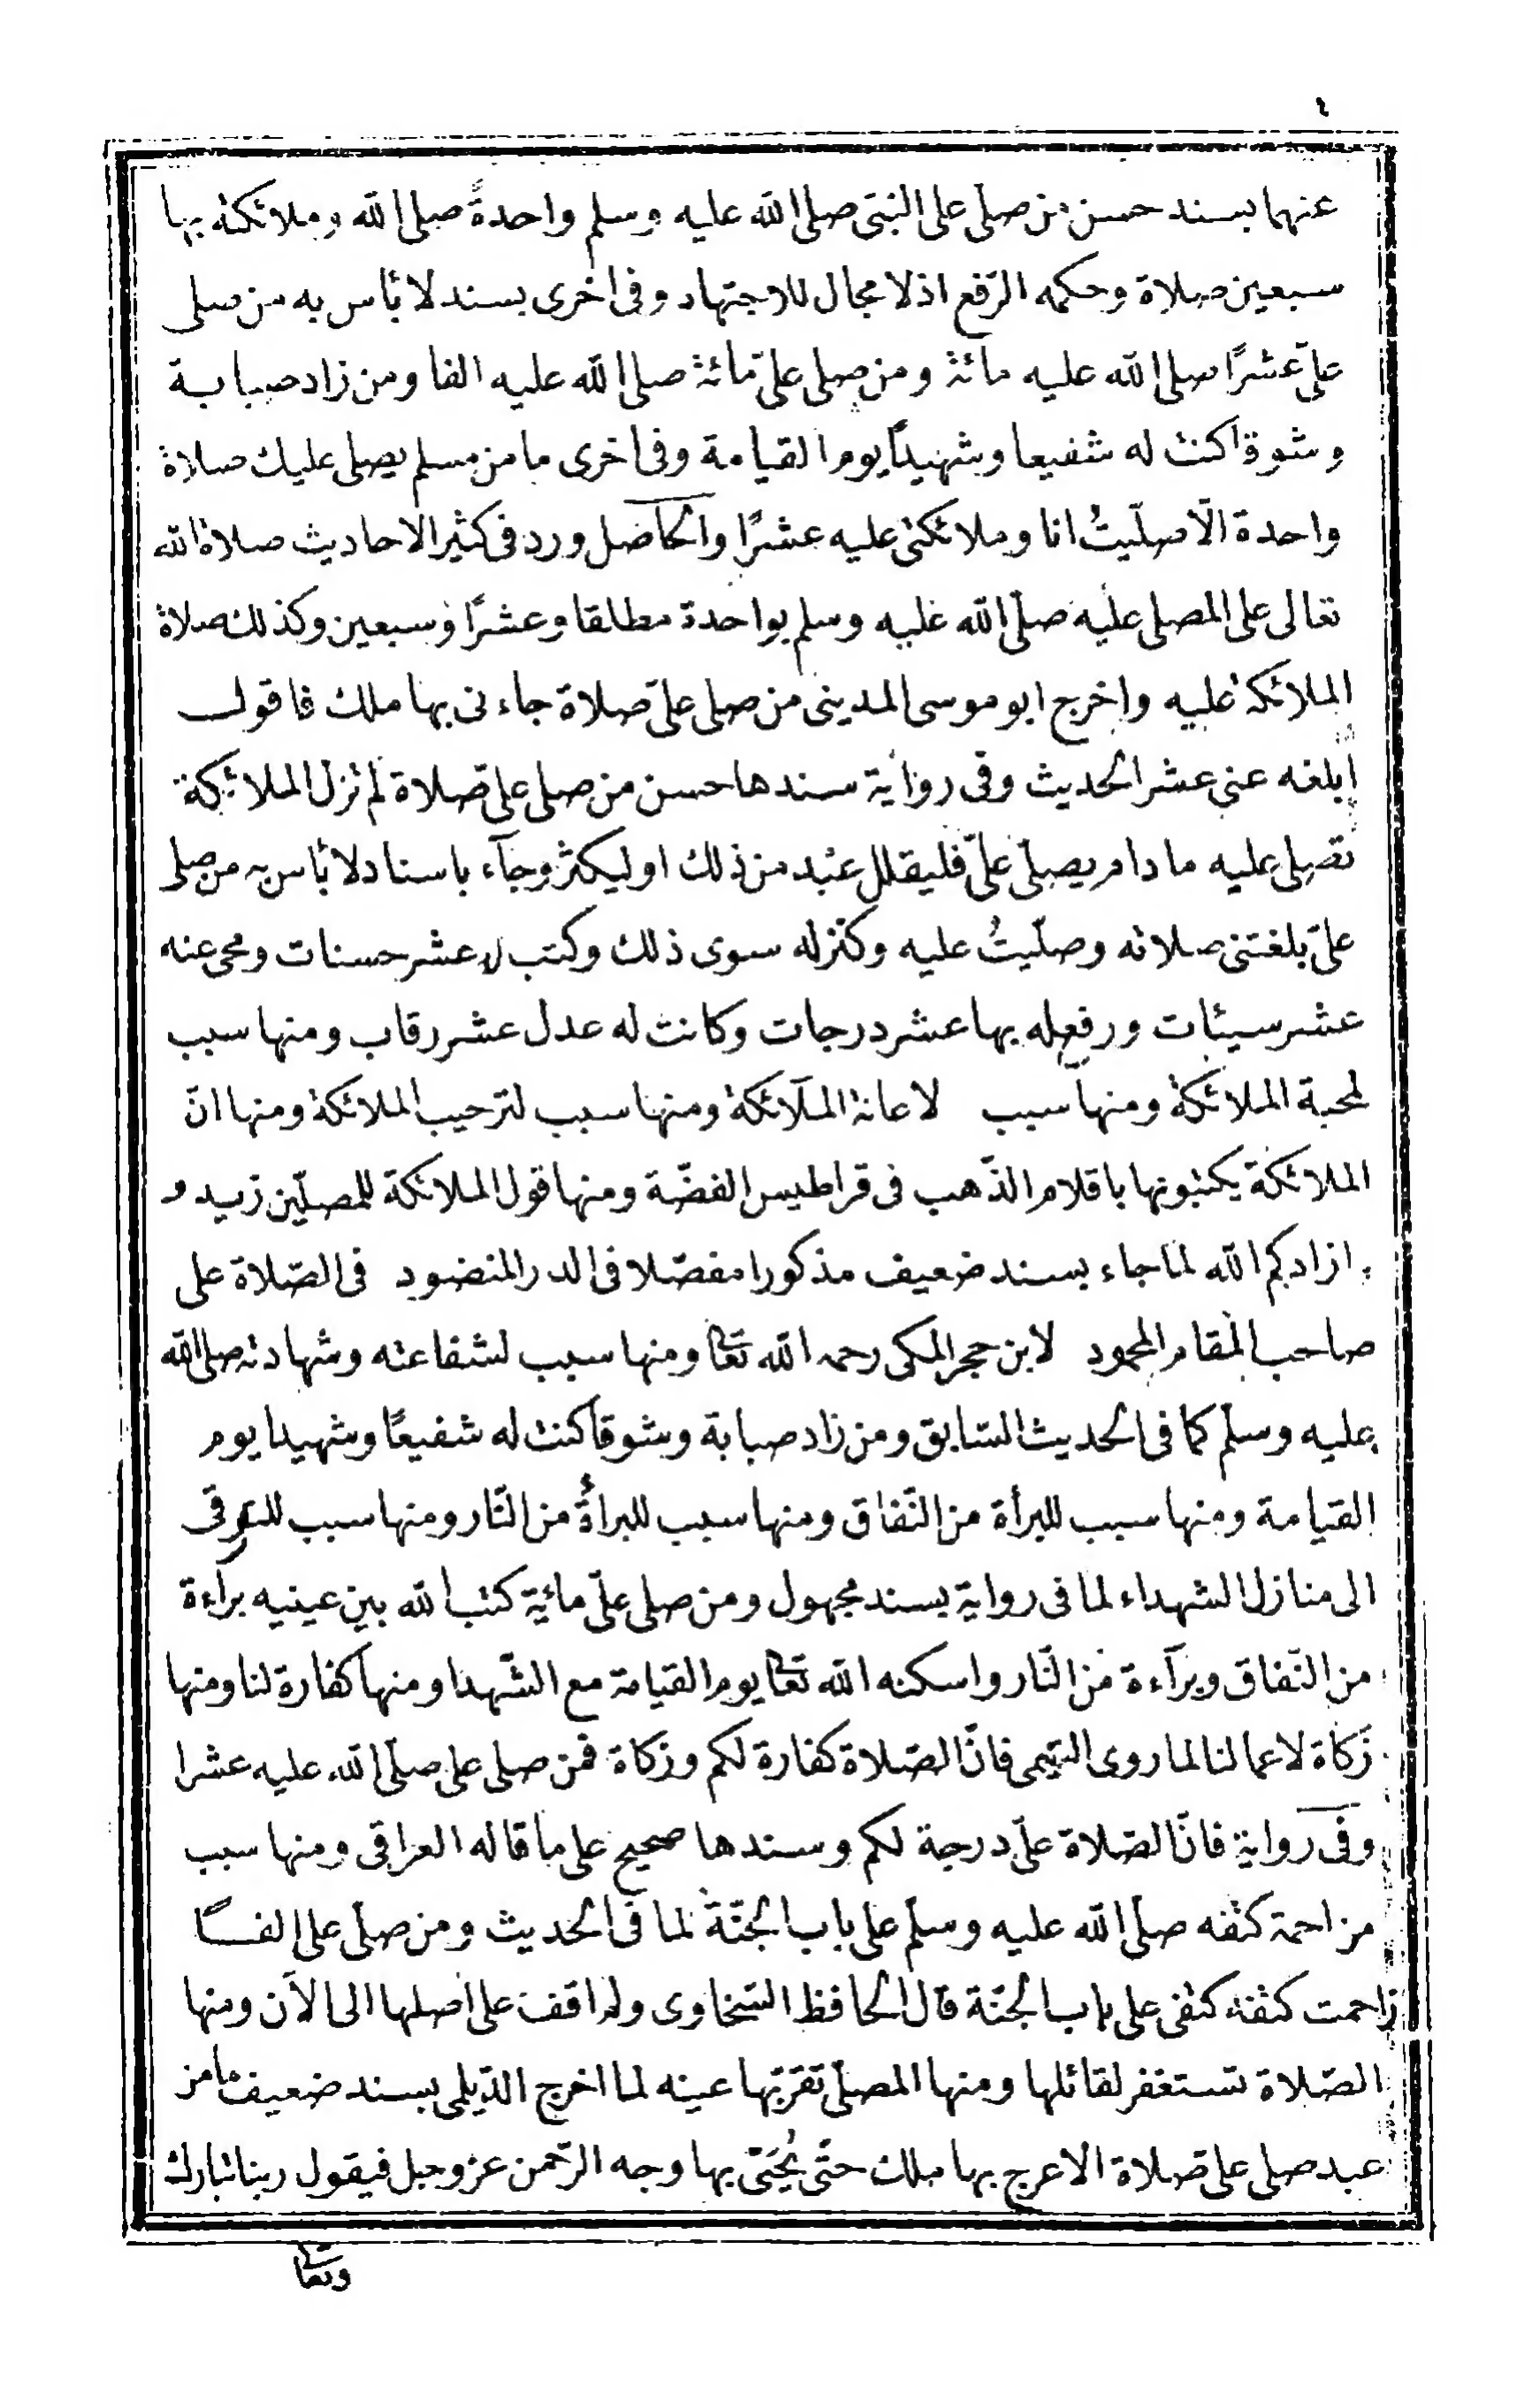 ٤
عنهما بسند حسن من صلى على النبى صلى الله عليه وسلم واحدةً صلى الله وملائكته بها
سبعين صلاة وحكمه الرّفع اذ لا مجال للاجتهاد وفى اخرى بسند لا بأس به من صلى
علىّ عشرًا صلى الله عليه مائة ومن صلى علىّ مائة صلى الله عليه الفا ومن زاد صبابة
وشوقا كنت له شفيعا وشهيدًا يوم القيامة وفى اخرى ما من مسلم يصلى عليك صلاة
واحدة الّا صلّيتُ انا وملائكتى عليه عشرًا والحاصل ورد فى كثير الاحاديث صلاة الله
تعالى على المصلى عليه صلّى الله عليه وسلم بواحدة مطلقا وعشرًا وسبعين وكذلك صلاة
الملائكة عليه واخرج ابو موسى المدينى من صلى علىّ صلاة جاءنى بها ملك فاقول
ابلغه عنى عشر الحديث وفى رواية سندها حسن من صلى علىّ صلاة لم تزل الملائكة
تصلى عليه ما دام يصلّى علىّ فليقلل عبد من ذلك او ليكثر وجآء باسناد لا بأس به من صلى
علىّ بلغتنى صلاته وصلّيتُ عليه وكتب له سوى ذلك وكتب له عشر حسنات ومحى عنه
عشر سيئات ورفع له بها عشر درجات وكانت له عدل عشر رقاب ومنها سبب
لمحبة الملائكة ومنها سبب لاعانة الملآئكة ومنها سبب لترحيب الملائكة ومنها انّ
الملائكة يكتبونها باقلام الذّهب فى قراطيس الفضّة ومنها قول الملائكة للمصلّين زيدو
ازادكم الله لما جاء بسند ضعيف مذكورا مفصّلا فى الدر المنضود فى الصّلاة على
صاحب المقام المحمود لابن حجر المكى رحمه الله تعا ومنها سبب لشفاعته وشهادته صلى الله
عليه وسلّم كما فى الحديث السّابق ومن زاد صبابة وشوقا كنت له شفيعًا وشهيدا يوم
القيامة ومنها سبب للبرأة من النّفاق ومنها سبب للبرأة من النّار ومنها سبب للترقى
الى منازل الشهداء لما فى رواية بسند مجهول ومن صلى علىّ مائية كتب الله بين عينيه برآءة
من النّفاق وبرآءة من النّار واسكنه الله تعا يوم القيامة مع الشّهدا ومنها كفارة لنا ومنها
زكاة لاعمالنا لما روى التيمى فانّ الصّلاة كفارة لكم وزكاة فمن صلى على صلّى الله عليه عشرا
وفى رواية فانّ الصّلاة علىّ درجة لكم وسندها صحيح على ما قاله العراقى ومنها سبب
مزاحمة كتفه صلّى الله عليه وسلّم على باب الجنّة لما فى الحديث ومن صلّى على الفًا
زاحمت كتفه كتفى على باب الجنّة قال الحافظ السّخاوى ولم اقف على اصلها الى الآن ومنها
الصّلاة تستغفر لقائلها ومنها المصلّى تقرّ بها عينه لما اخرج الدّيلمى بسند ضعيف ما من
عبد صلى علىّ صلاة الا عرج بها ملك حتّى يُحَيّى بها وجه الرّحمن عز وجل فيقول ربنا تبارك
وتعا